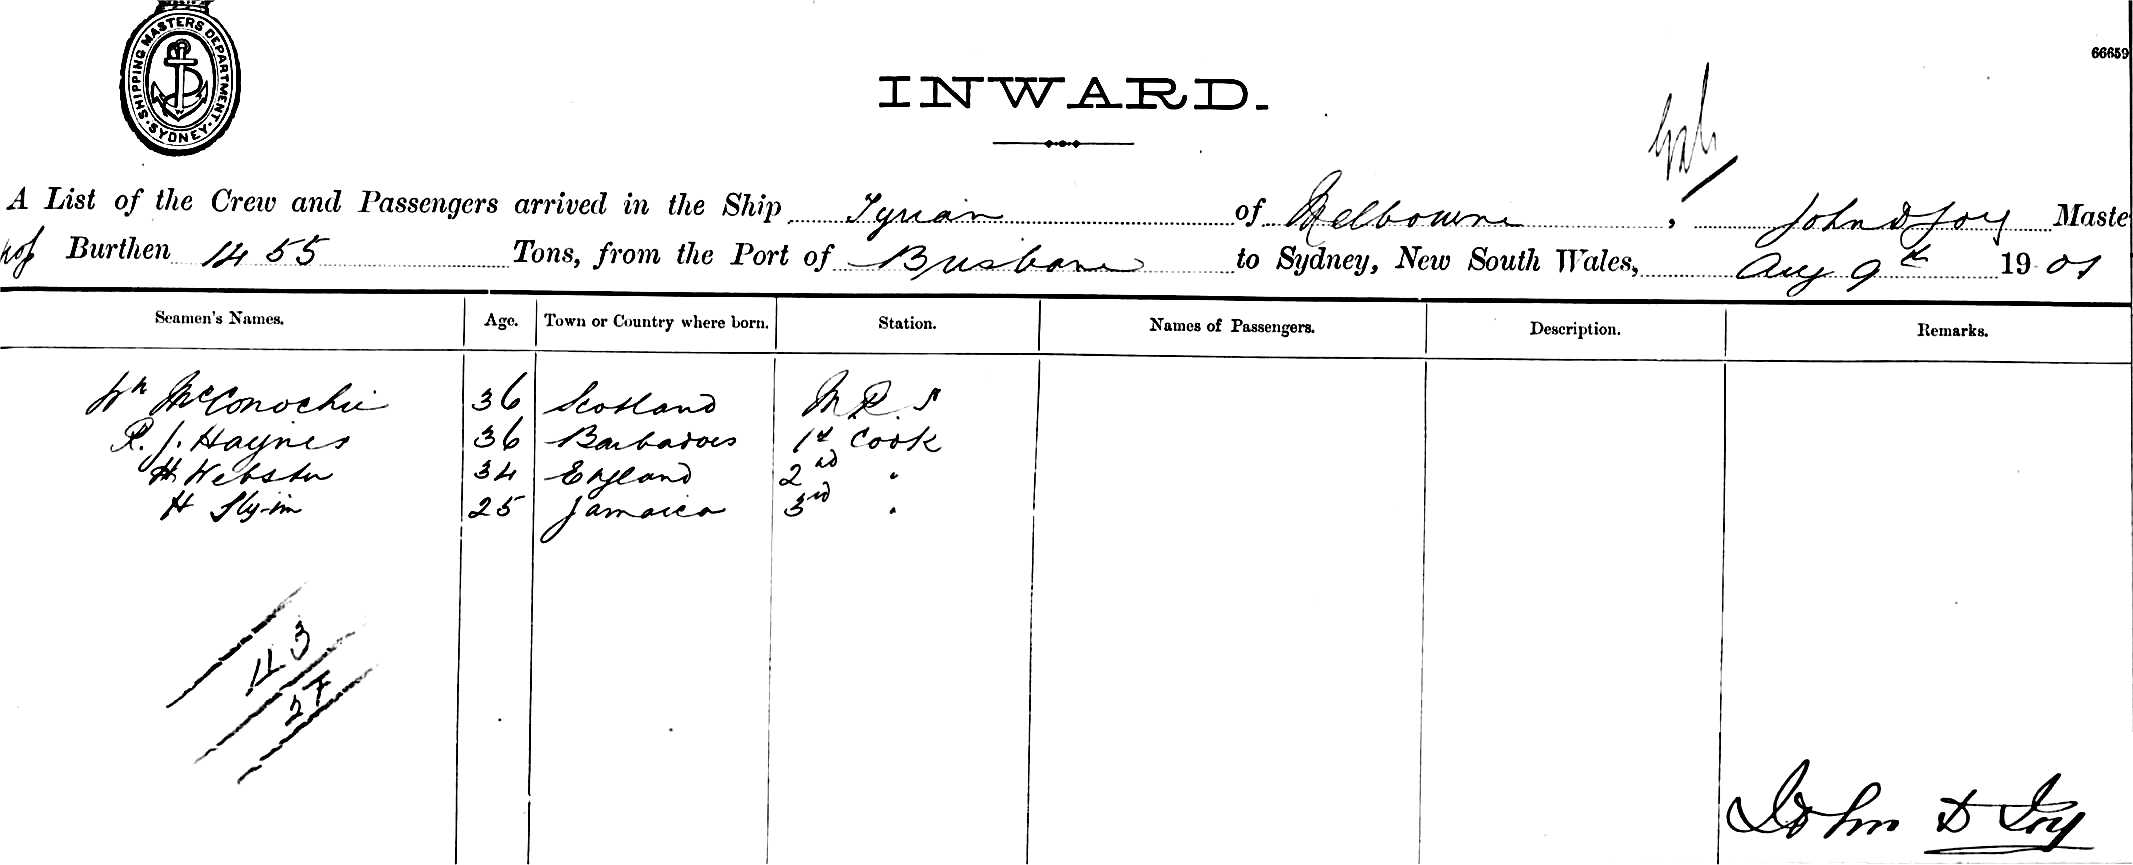 SHIPPING MASTERS DEPARTMENT. SYDNEY
66659
INWARD.
A List of the Crew and Passengers arrived in the Ship Tyrian of Melbourne, John D Joy Maste
Burthen 1455 Tons, from the Port of Brisbane to Sydney, New South Wales, Aug 9th 1901
Seamen's Names. Age. Town or Country where born. Station. Names of Passengers. Description. Remarks.
Wm McConochie 36 Scotland M.R.S
R. J. Haynes 36 Barbadoes 1st Cook
H Webster 34 England 2nd "
H 25 Jamaica 3rd "
113
27
John D Joy